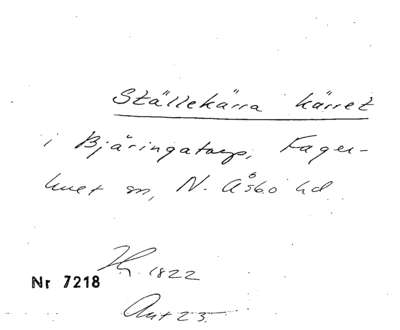 Ställekärra kärret
i Bjäringatorp, Fager-
hult sn, N. Åsbo hd
Hy. 1822
Nr 7218
Ant 23.